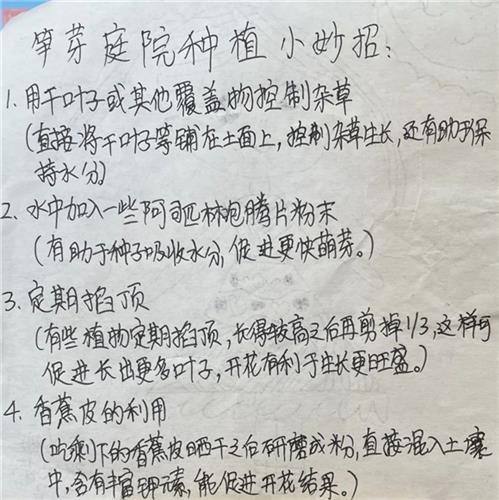 笋芽庭院种植小妙招:
1. 用干叶子或其他覆盖物控制杂草
(直接将干叶子等铺在土面上,控制杂草生长,还有助于保
持水分)
2. 水中加入一些阿司匹林泡腾片粉末
(有助于种子吸收水分,促进更快萌芽。)
3. 定期掐顶
(有些植物定期掐顶,长得较高之后再剪掉1/3,这样可
促进长出更多叶子,开花有利于生长更旺盛。)
4. 香蕉皮的利用
(吃剩下的香蕉皮晒干之后研磨成粉,直接混入土壤
中,含有丰富钾元素,能促进开花结果。)